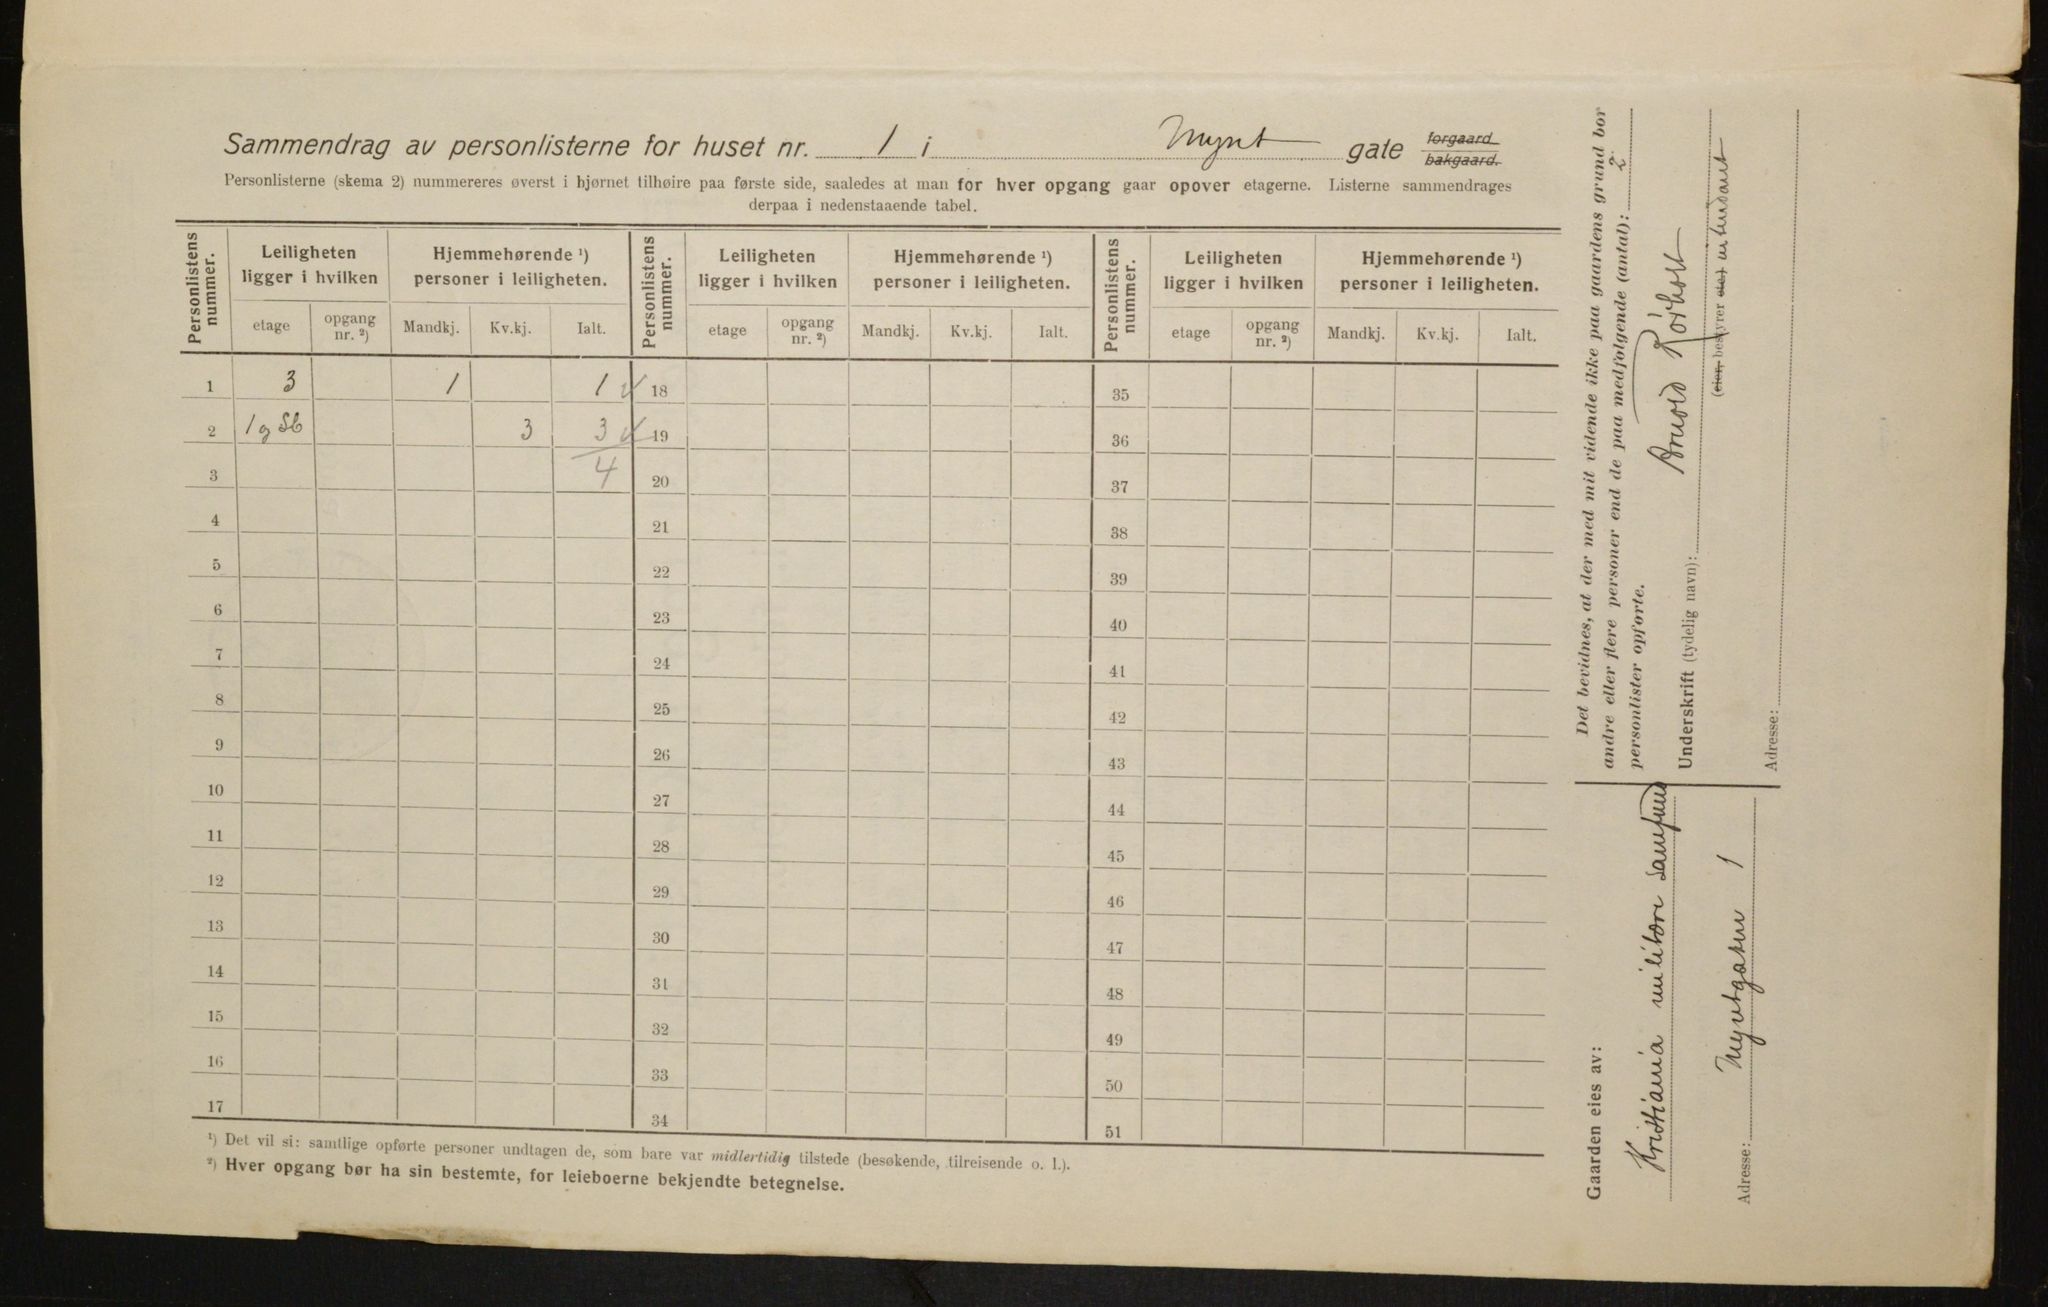 Sammendrag av personlisterne for huset nr. 1 i Mynt gate forgaard bakgaard.
Personlisterne (skema 2) nummereres øverst i hjørnet tilhøire paa første side, saaledes at man for hver opgang gaar opover etagerne. Listerne sammendrages
derpaa i nedenstaaende tabel.
Personlistens nummer. Leiligheten ligger i hvilken Hjemmehørende ¹) personer i leiligheten. Personlistens nummer. Leiligheten ligger i hvilken Hjemmehørende ¹) personer i leiligheten. Personlistens nummer. Leiligheten ligger i hvilken Hjemmehørende ¹) personer i leiligheten.
etage opgang nr. ²) Mandkj. Kv.kj. Ialt. etage opgang nr. ²) Mandkj. Kv.kj. Ialt. etage opgang nr. ²) Mandkj. Kv.kj. Ialt.
1 3 1 1 18 35
2 1 og Sb 3 3 19 36
3 4 20 37
4 21 38
5 22 39
6 23 40
7 24 41
8 25 42
9 26 43
10 27 44
11 28 45
12 29 46
13 30 47
14 31 48
15 32 49
16 33 50
17 34 51
¹) Det vil si: samtlige opførte personer undtagen de, som bare var midlertidig tilstede (besøkende, tilreisende o. l.).
²) Hver opgang bør ha sin bestemte, for leieboerne bekjendte betegnelse.
Det bevidnes, at der med mit vidende ikke paa gaardens grund bor
andre eller flere personer end de paa medfølgende (antal): 2
personlister opførte.
Underskrift (tydelig navn):
(eier, bestyrer eler intendant
Adresse:
Gaarden eies av:
Kristiania militære Samfund
Adresse: Myntgaten 1